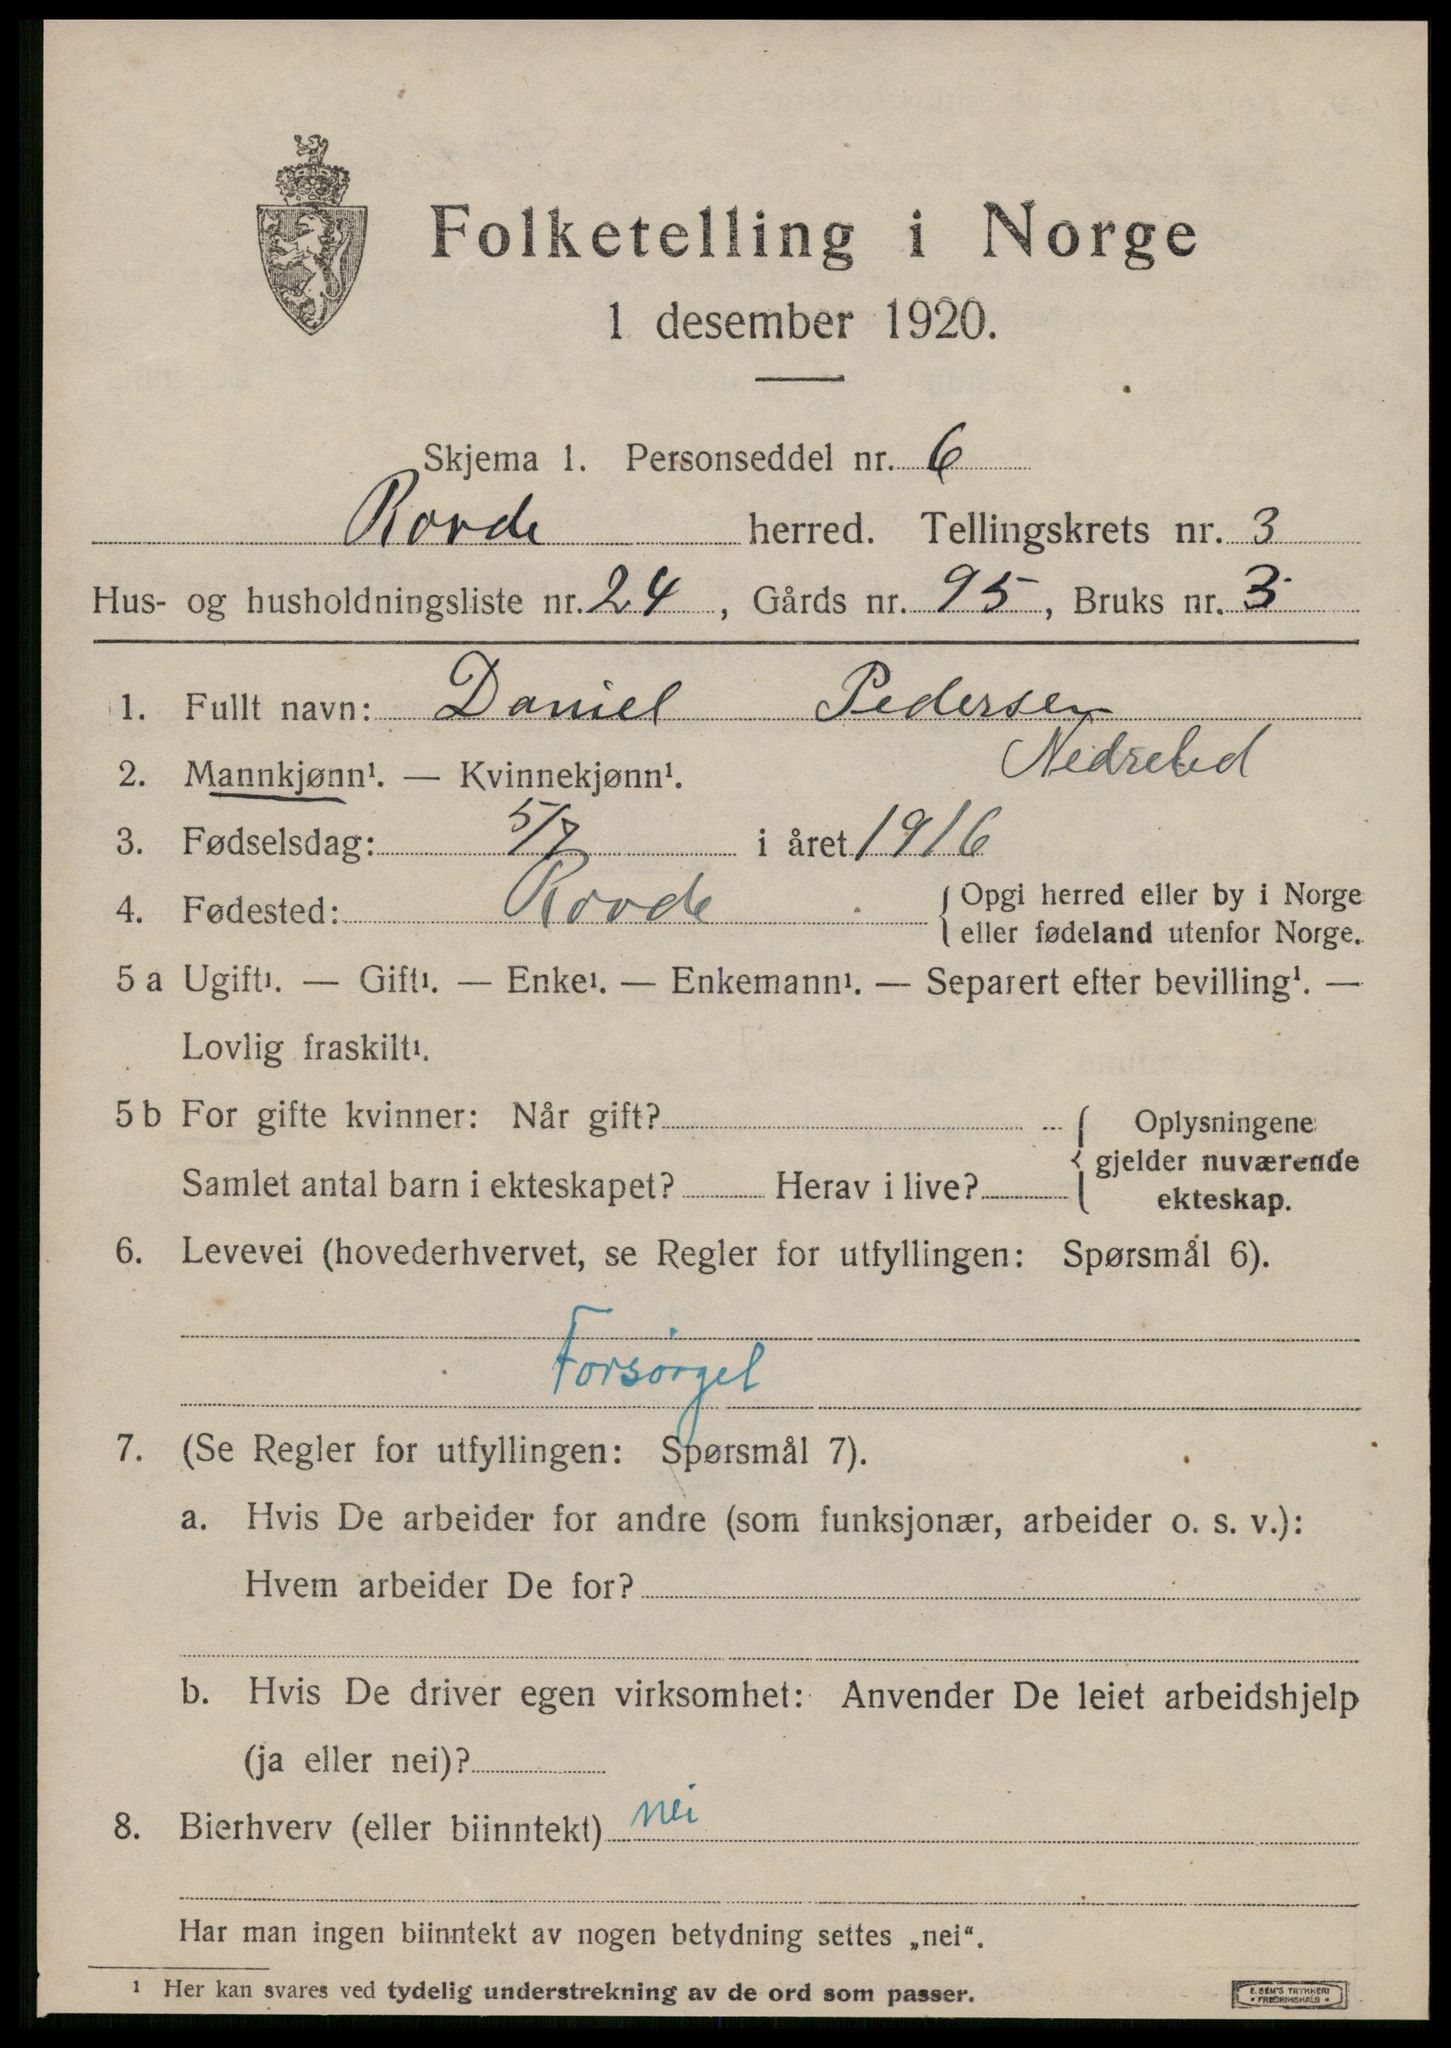 Folketelling i Norge
1 desember 1920.
Skjema 1. Personseddel nr. 6
Rovde herred. Tellingskrets nr. 3
Hus- og husholdningsliste nr. 24, Gårds nr. 95, Bruks nr. 3
1. Fullt navn: Daniel Pedersen
2. Mannkjønn¹. — Kvinnekjønn¹.
3. Fødselsdag: 5/7 i året 1916
4. Fødested: Rovde { Opgi herred eller by i Norge
eller fødeland utenfor Norge.
5 a Ugift¹. — Gift¹. — Enke¹. — Enkemann¹. — Separert efter bevilling¹. —
Lovlig fraskilt¹.
5 b For gifte kvinner: Når gift? { Oplysningene
gjelder nuværende
Samlet antal barn i ekteskapet? Herav i live? ekteskap.
6. Levevei (hovederhvervet, se Regler for utfyllingen: Spørsmål 6).
Forsørget
7. (Se Regler for utfyllingen: Spørsmål 7).
a. Hvis De arbeider for andre (som funksjonær, arbeider o. s. v.):
Hvem arbeider De for?
b. Hvis De driver egen virksomhet: Anvender De leiet arbeidshjelp
(ja eller nei)?
8. Bierhverv (eller biinntekt) nei
Har man ingen biinntekt av nogen betydning settes „nei“.
¹ Her kan svares ved tydelig understrekning av de ord som passer.
E. SEM'S TRYKKERI
• FREDRIKSHALD •